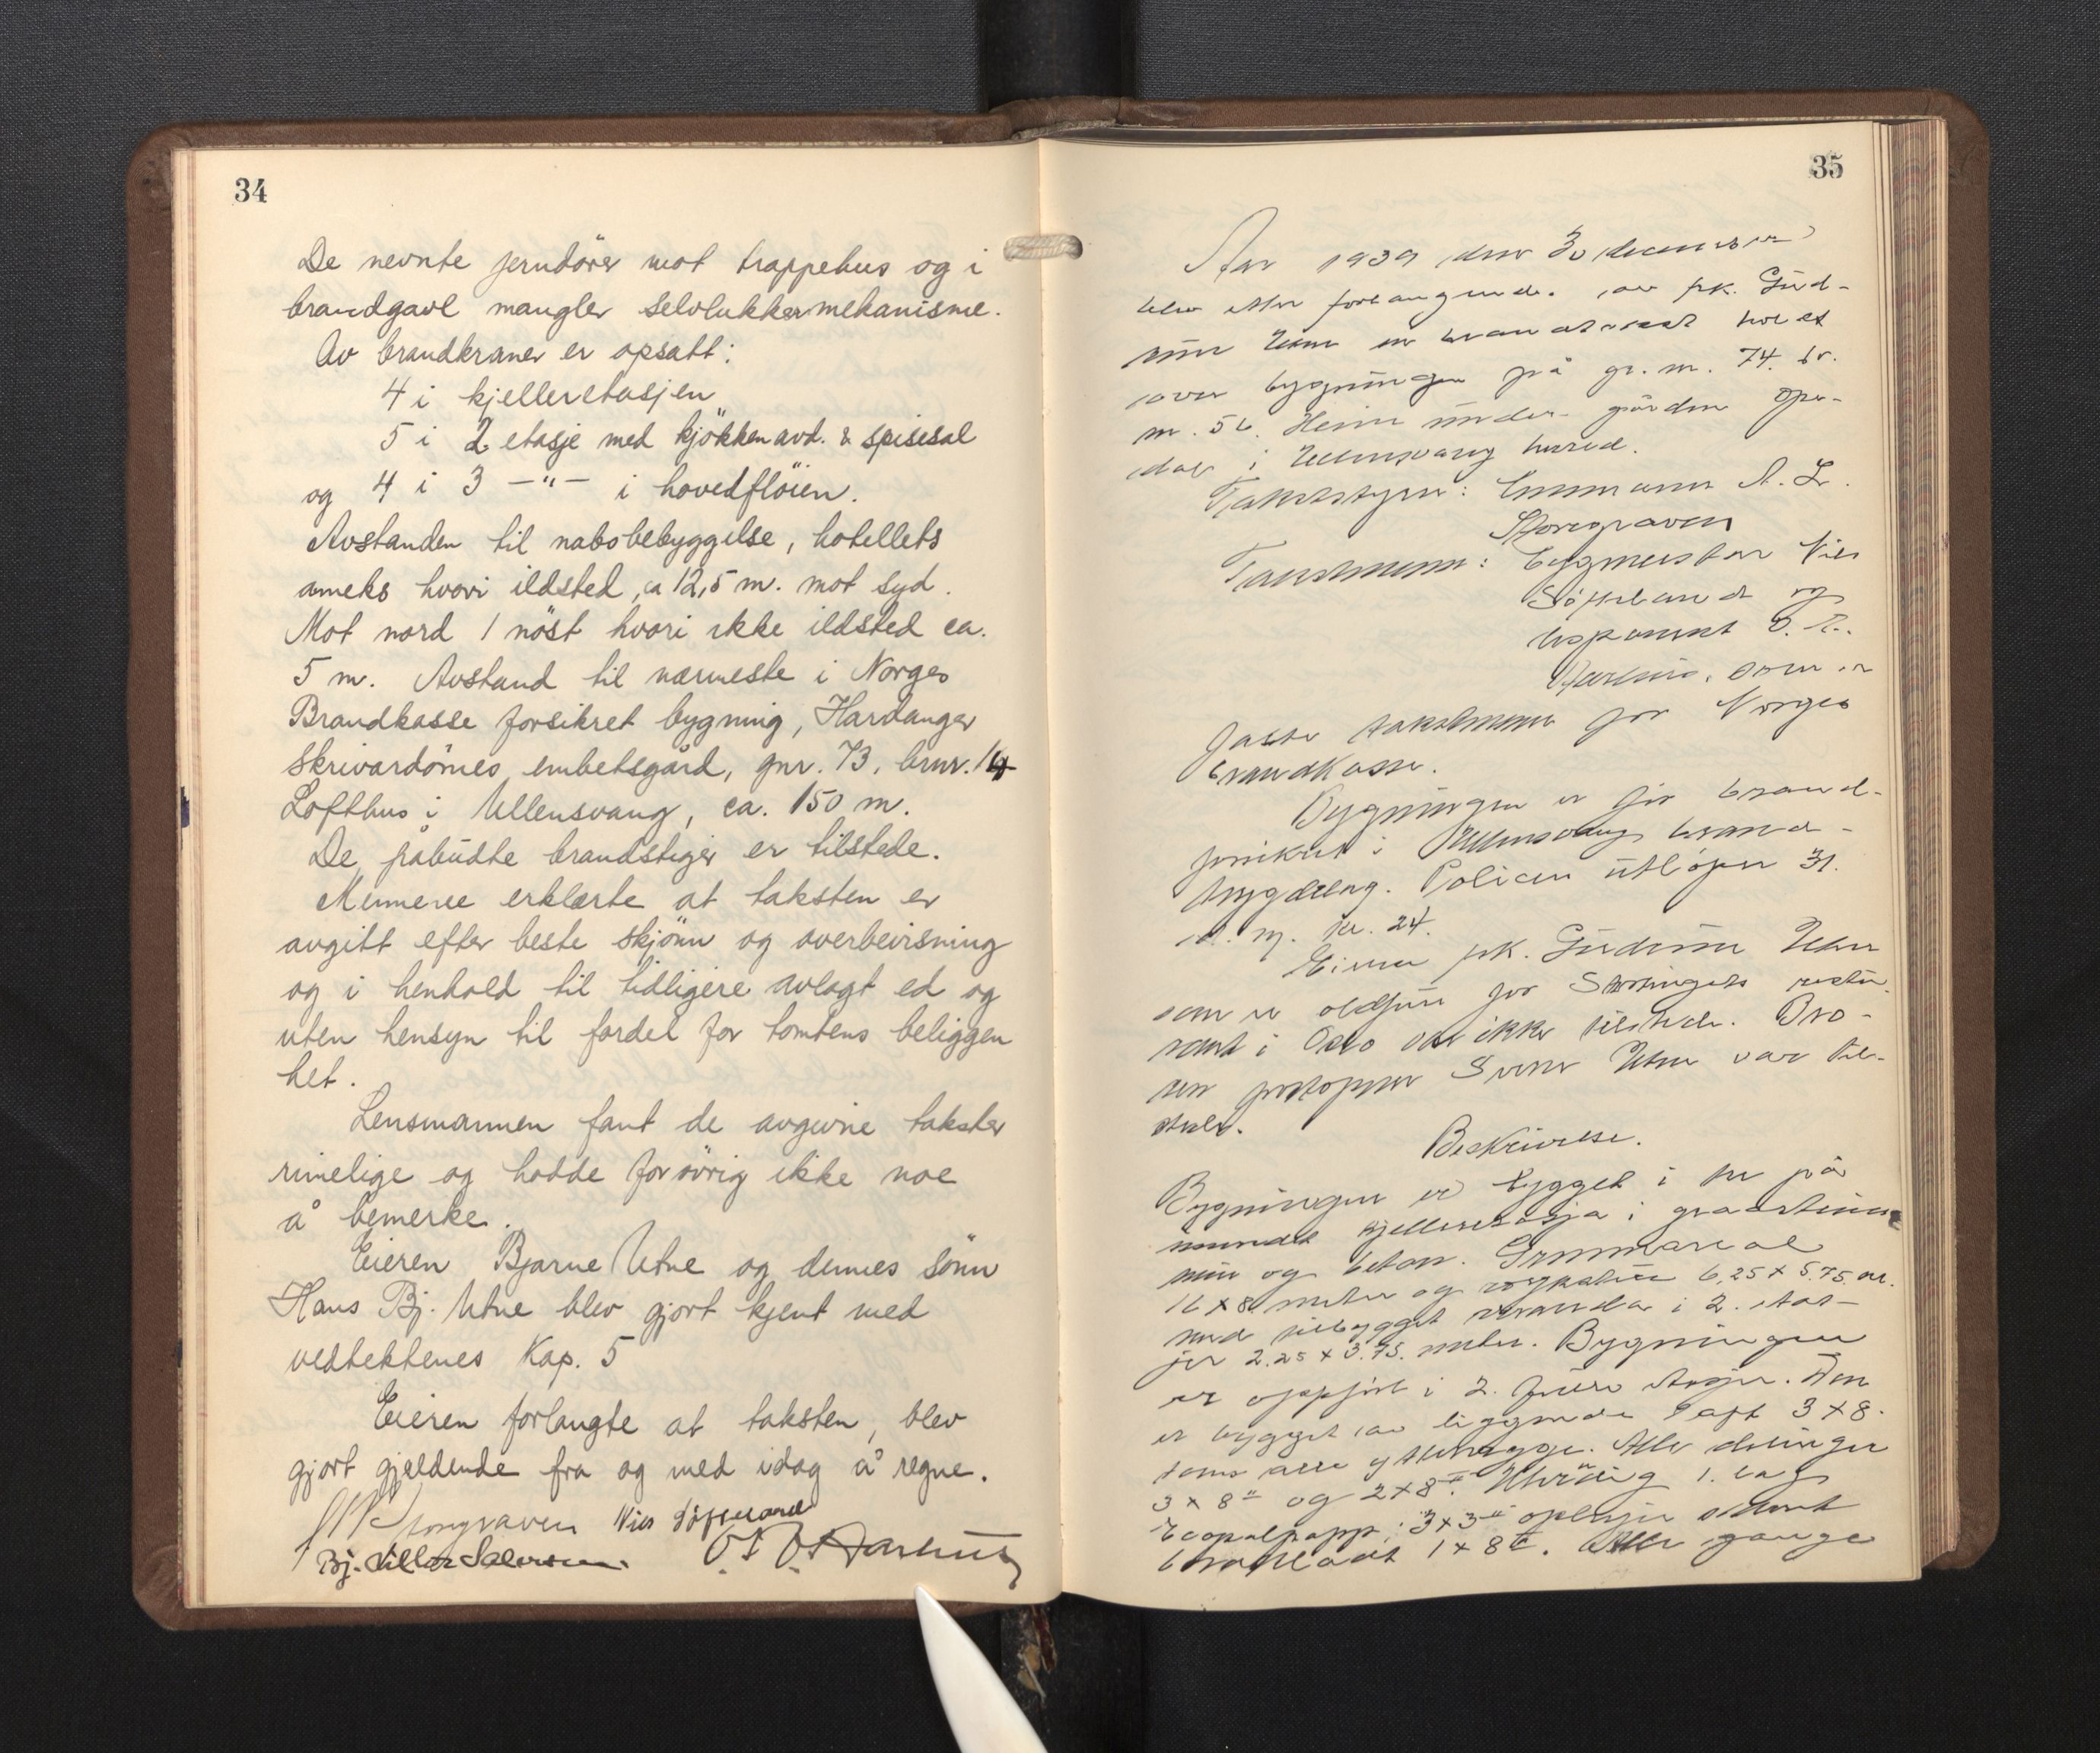 34
De nevnte jerndörer mot trappehus og i
brandgavl mangler selvlukkermekanisme.
Av brandkraner er opsatt:
4 i kjelleretasjen
5 i 2 etasje med kjökkenavd. & spisesal
og 4 i 3 —"— i hovedflöien.
Avstanden til nabobebyggelse, hotellets
anneks hvori ildsted, ca 12,5 m. mot syd.
Mot nord 1 nöst hvori ikke ildsted ca.
5 m. Avstand til nærmeste i Norges
Brandkasse forsikret bygning, Hardanger
Skrivardömes embetsgård, gnr. 73, brnr. 14
Lofthus i Ullensvang, ca. 150 m.
De påbudte brandstiger er tilstede.
Mennene erklærte at taksten er
avgitt efter beste skjönn og overbevisning
og i henhold til tidligere avlagt ed og
uten hensyn til fordel for tomtens beliggen
het.
Lensmannen fant de avgivne takster
rimelige og hadde forövrig ikke noe
å bemerke.
Eieren Bjarne Utne og dennes sönn
Hans Bj. Utne blev gjort kjent med
vedtektenes Kap. 5
Eieren forlangte at taksten, blev
gjort gjeldende fra og med idag å regne.
35
År 1939 den 30 december
blev etter forlangende av frk. Gud-
run Utne en brandtakst holdt
over bygningen på gr. nr. 74 br.
nr. 56 Heim under gården Ope-
dal i Ullensvang herred.
Takststyrer: lensmann A. L.
Storegraven
Takstmenn: bygmester Nils
og
O. T.
som er
faste takstmenn for Norges
brandkasse.
Bygningen er för brand-
forsikret i Ullensvang brand-
trygdelag. Policen utlöper 31.
d. m. kl. 24.
Eieren frk. Gudrun Utne
som er oldfrue for Stortingets restu
rant i Oslo var ikke tilstede. Bro-
ren Sverre Utne var til-
stede.
Beskrivelse.
Bygningen er bygget i tre på
kjelleretasje i gråstein
mur og betong. Grunnareal
8 meter og 6,25 x 5,75 m.
med tilbygget veranda i 2. etas-
je 2.25 x 3.75. meter. Bygningen
er oppfört i 2. fulle etasjer. Den
er bygget av liggende taft 3 x 8
yttervegge. Alle delinger
3 x 8" og 2 x 8". Utvendig 1. lag
papp. 3 x 3"
1 x 8". Alle gange